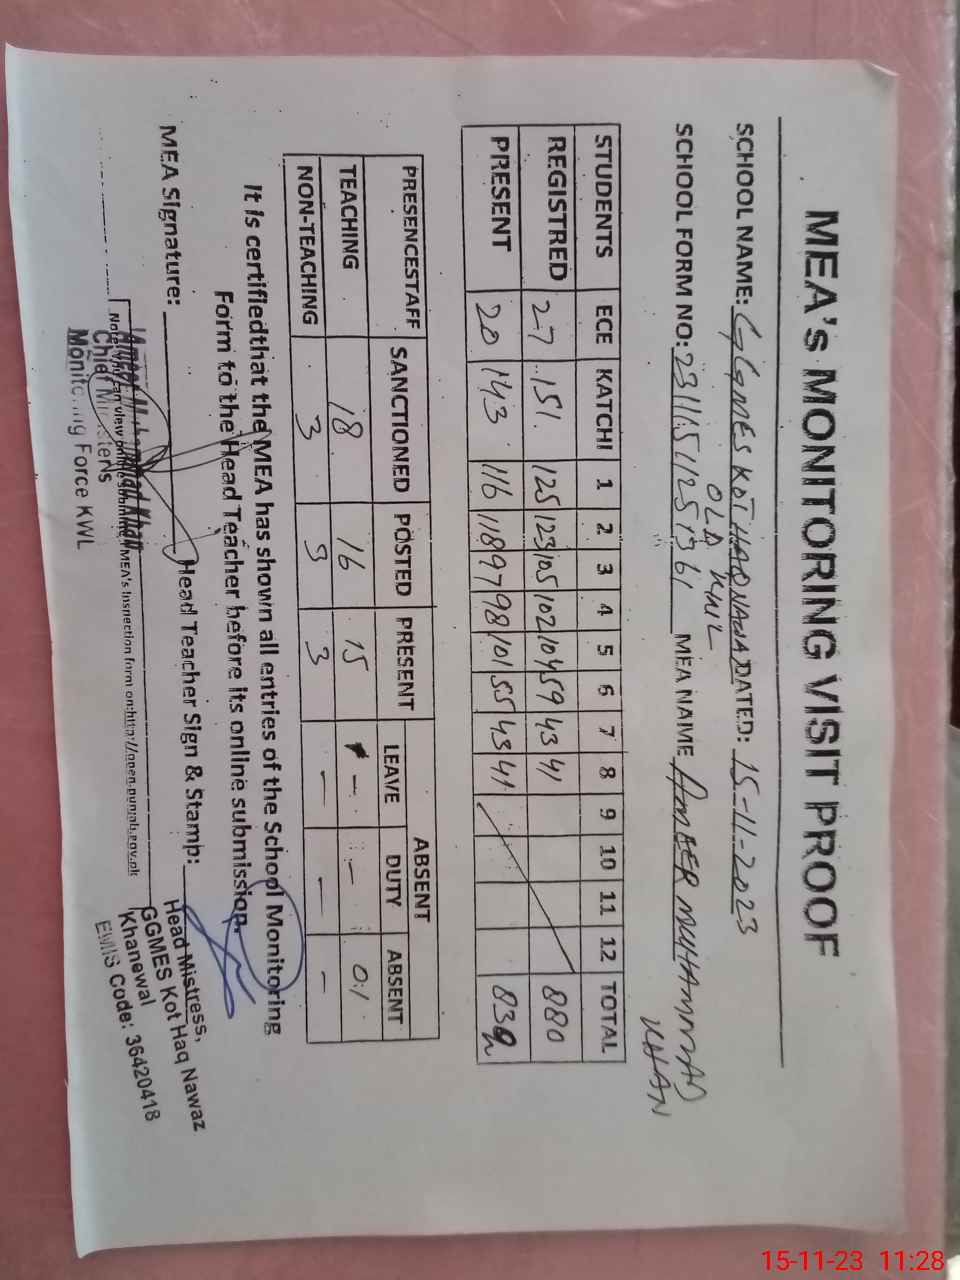 MEA's MONITORING VISIT PROOF
SCHOOL NAME: GGMES KOT HAQ NAWAZ DATED: 15-11-2023
OLD KWL
SCHOOL FORM NO: 23111511251361 MEA NAME AMEER MUHAMMAD
KHAN
STUDENTS ECE KATCHI 1 2 3 4 5 6 7 8 9 10 11 12 TOTAL
REGISTRED 27 151 125 123 105 102 104 59 43 41 880
PRESENT 20 143 116 118 97 98 101 55 43 41
PRESENCESTAFF SANCTIONED POSTED PRESENT ABSENT
LEAVE DUTY ABSENT
TEACHING 18 16 15 - - 01
NON-TEACHING 3 3 3 - - -
It is certifiedthat the MEA has shown all entries of the School Monitoring
Form to the Head Teacher before its online submission.
MEA Signature: Head Teacher Sign & Stamp:
Head Mistress,
GGMES Kot Haq Nawaz
Khanewal
EMIS Code: 36420418
Ameer Muhammad Khan
Chief Ministers
Monitoring Force KWL
MEA's Inspection form on:http://open.punjab.gov.pk
15-11-23 11:28